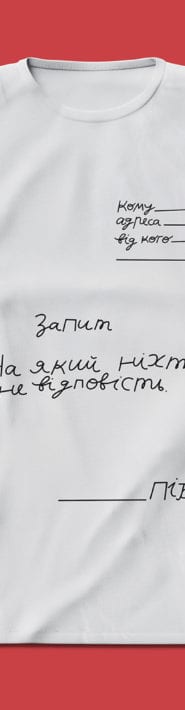 кому
адреса
від кого
Запит
На який ніхт
не відповість.
ПІБ